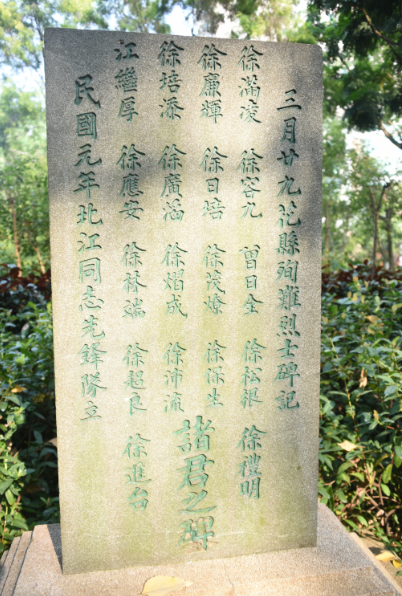 三月廿九花縣殉難烈士碑記
徐滿凌 徐容九 曾日全 徐松根 徐禮明
徐廉輝 徐日培 徐茂燎 徐保生
徐培添 徐廣滔 徐熠成 徐沛流 諸君之碑
江繼厚 徐應安 徐林端 徐超良 徐進台
民國元年北江同志先鋒隊立